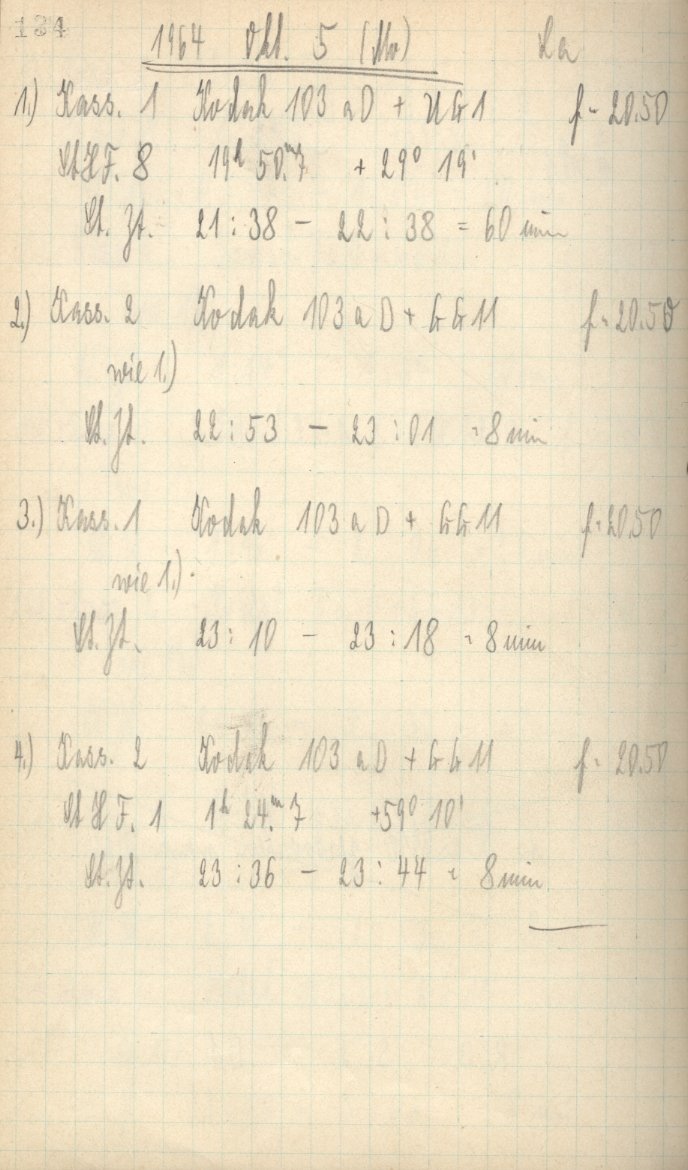 134
1964 Okt. 5 (Mo) La
1.) Kass. 1 Kodak 103 a D + UG1 f = 20.50
St H F. 8 19h 50.m7 + 29° 19'
St. Zt. 21 : 38 – 22 : 38 = 60 min
2.) Kass. 2 Kodak 103 a D + GG 11 f = 20.50
wie 1.)
St. Zt. 22 : 53 – 23 : 01 = 8 min
3.) Kass. 1 Kodak 103 a D + GG 11 f = 20.50
wie 1.)
St. Zt. 23 : 10 – 23 : 18 = 8 min
4.) Kass. 2 Kodak 103 a D + GG 11 f = 20.50
St H F. 1 1h 24.m7 +59° 10'
St. Zt. 23 : 36 – 23 : 44 = 8 min